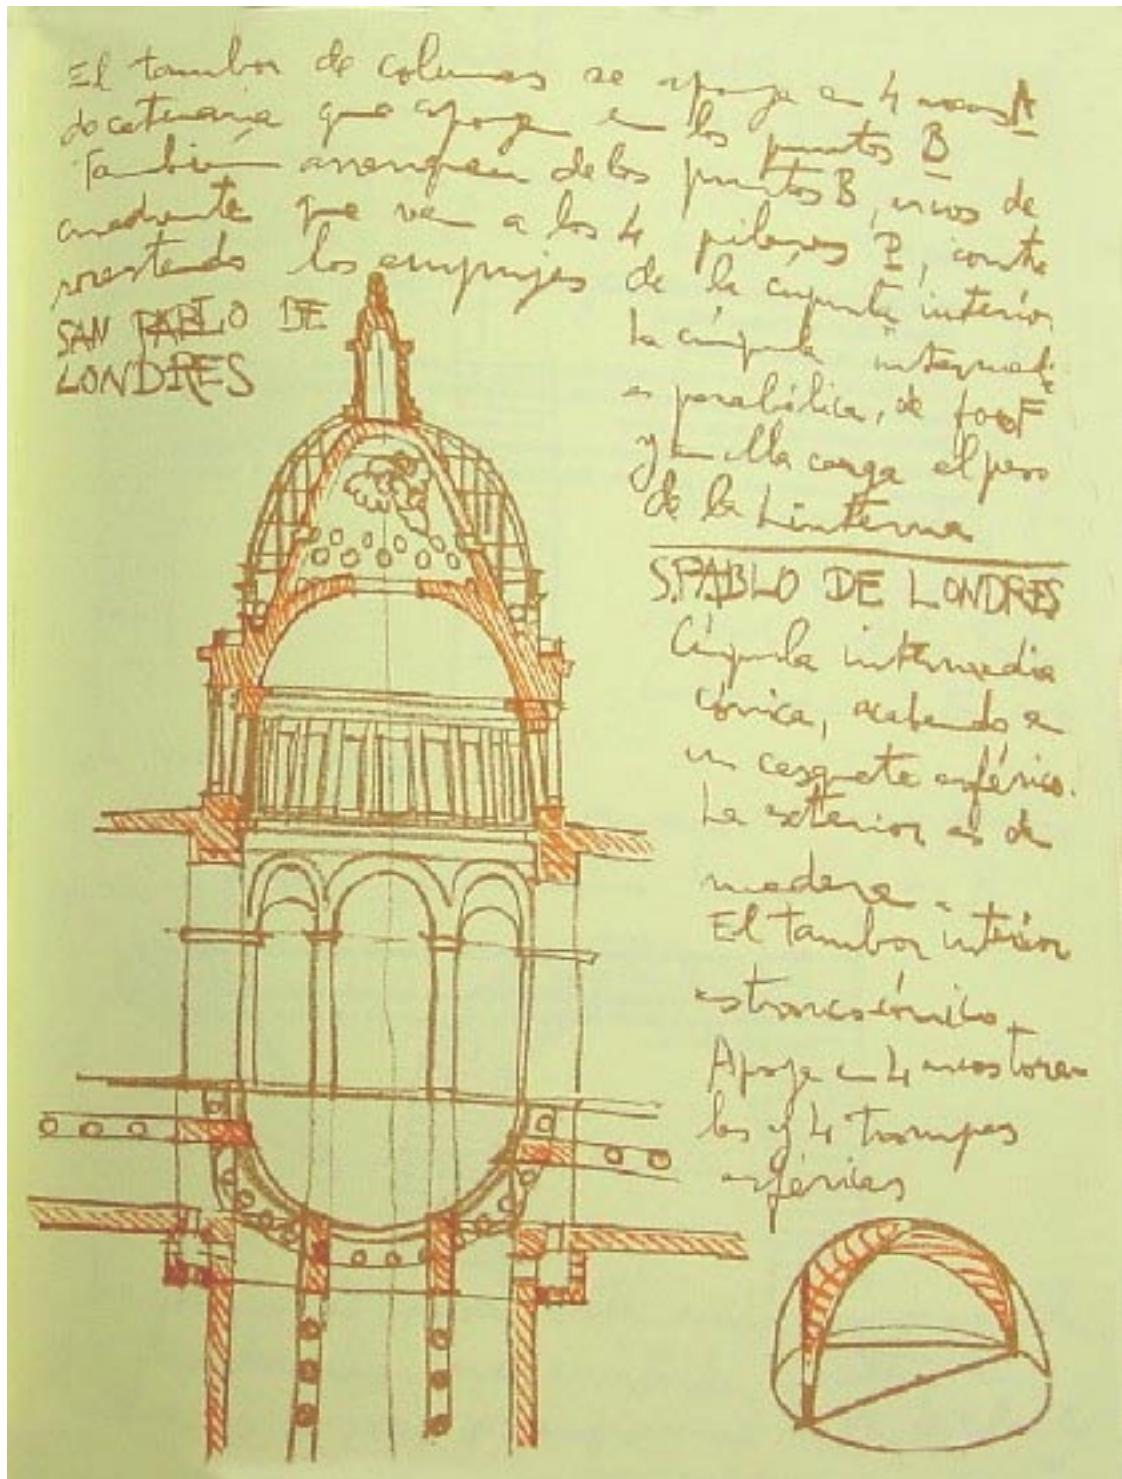 El tambor de columnas se apoya en 4 arcos A
de catenaria que apoyan en los puntos B
También arrancan de los puntos B, arcos de
cuadrante que van a los 4 pilares P, contra
rrestando los empujes de la cúpula interior
SAN PABLO DE
LONDRES
la cúpula intermedia
es parabólica, de foco F
y en ella carga el peso
de la Linterna
S.PABLO DE LONDRES
Cúpula intermedia
cónica, acabando en
un casquete esférico.
La exterior es de
madera.
El tambor interior
es troncocónico
Apoya en 4 arcos tora
les y 4 trompas
esféricas